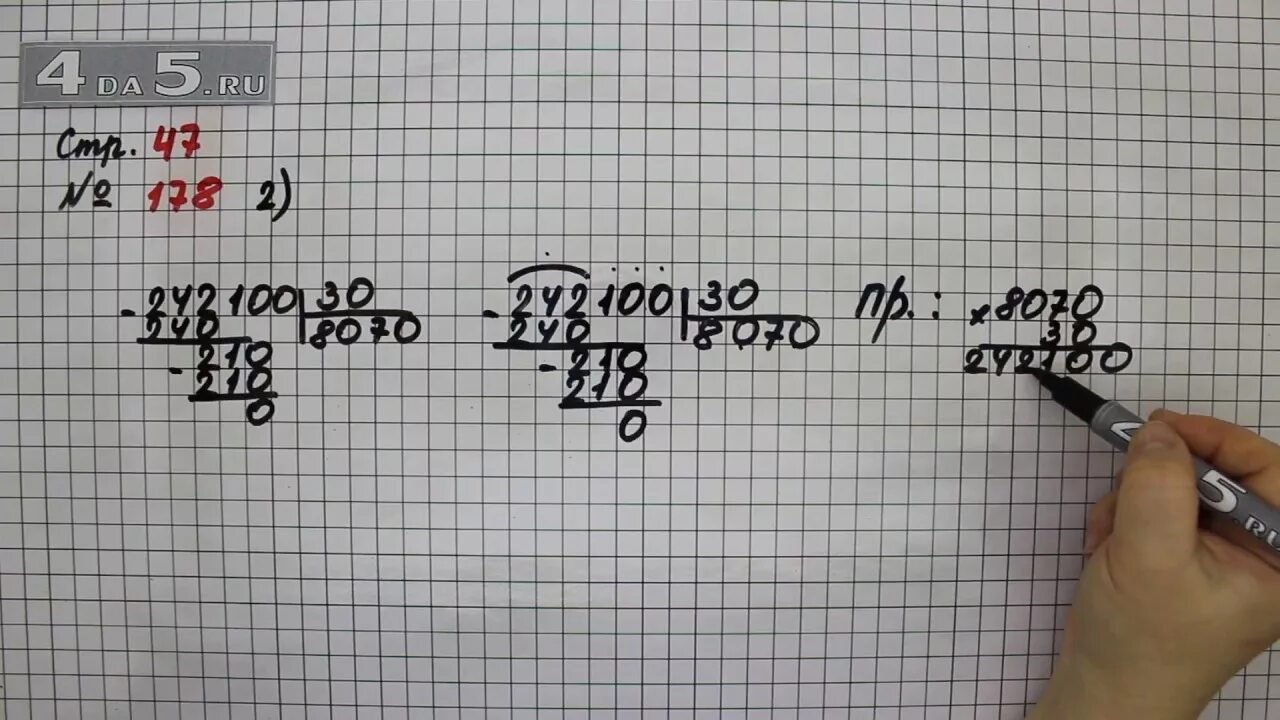 4 DA 5.RU
Стр. 47
№ 178 2)
- 242100 | 30
240 | 8070
- 210
210
0
- 242100 | 30
240 | 8070
- 210
210
0
пр.: × 8070
30
242100
5.RU